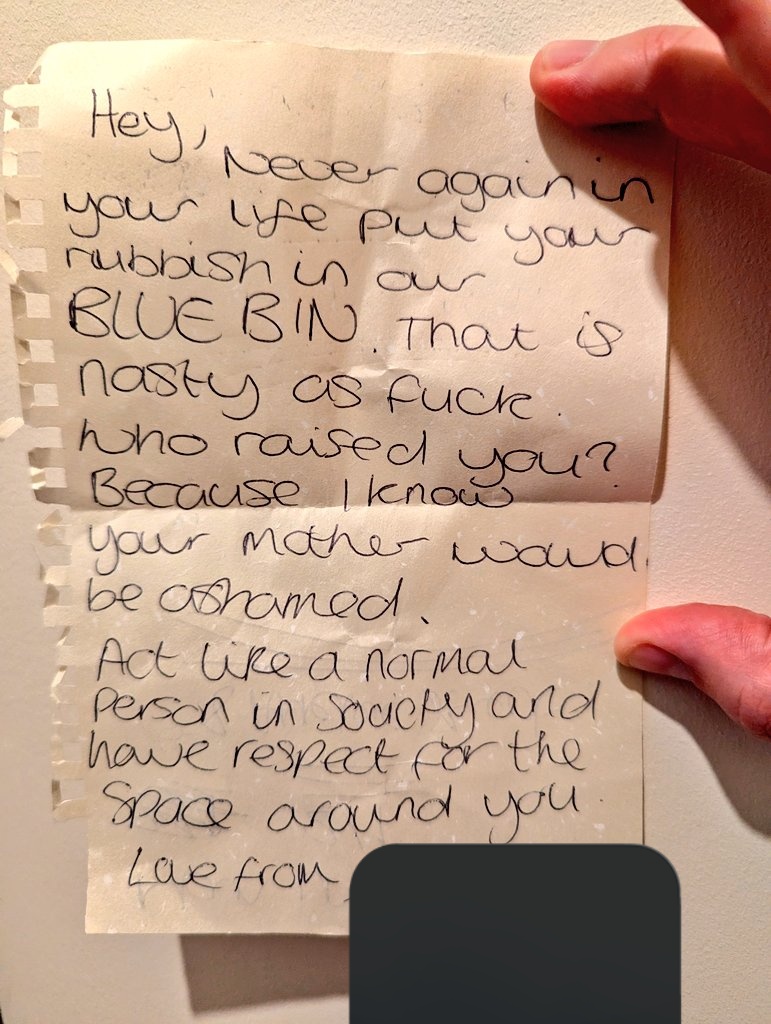 Hey,
Never again in
your life put your
rubbish in our
BLUE BIN. That is
nasty as fuck.
Who raised you?
Because I know
your mother would
be ashamed.
Act like a normal
person in society and
have respect for the
space around you.
Love from